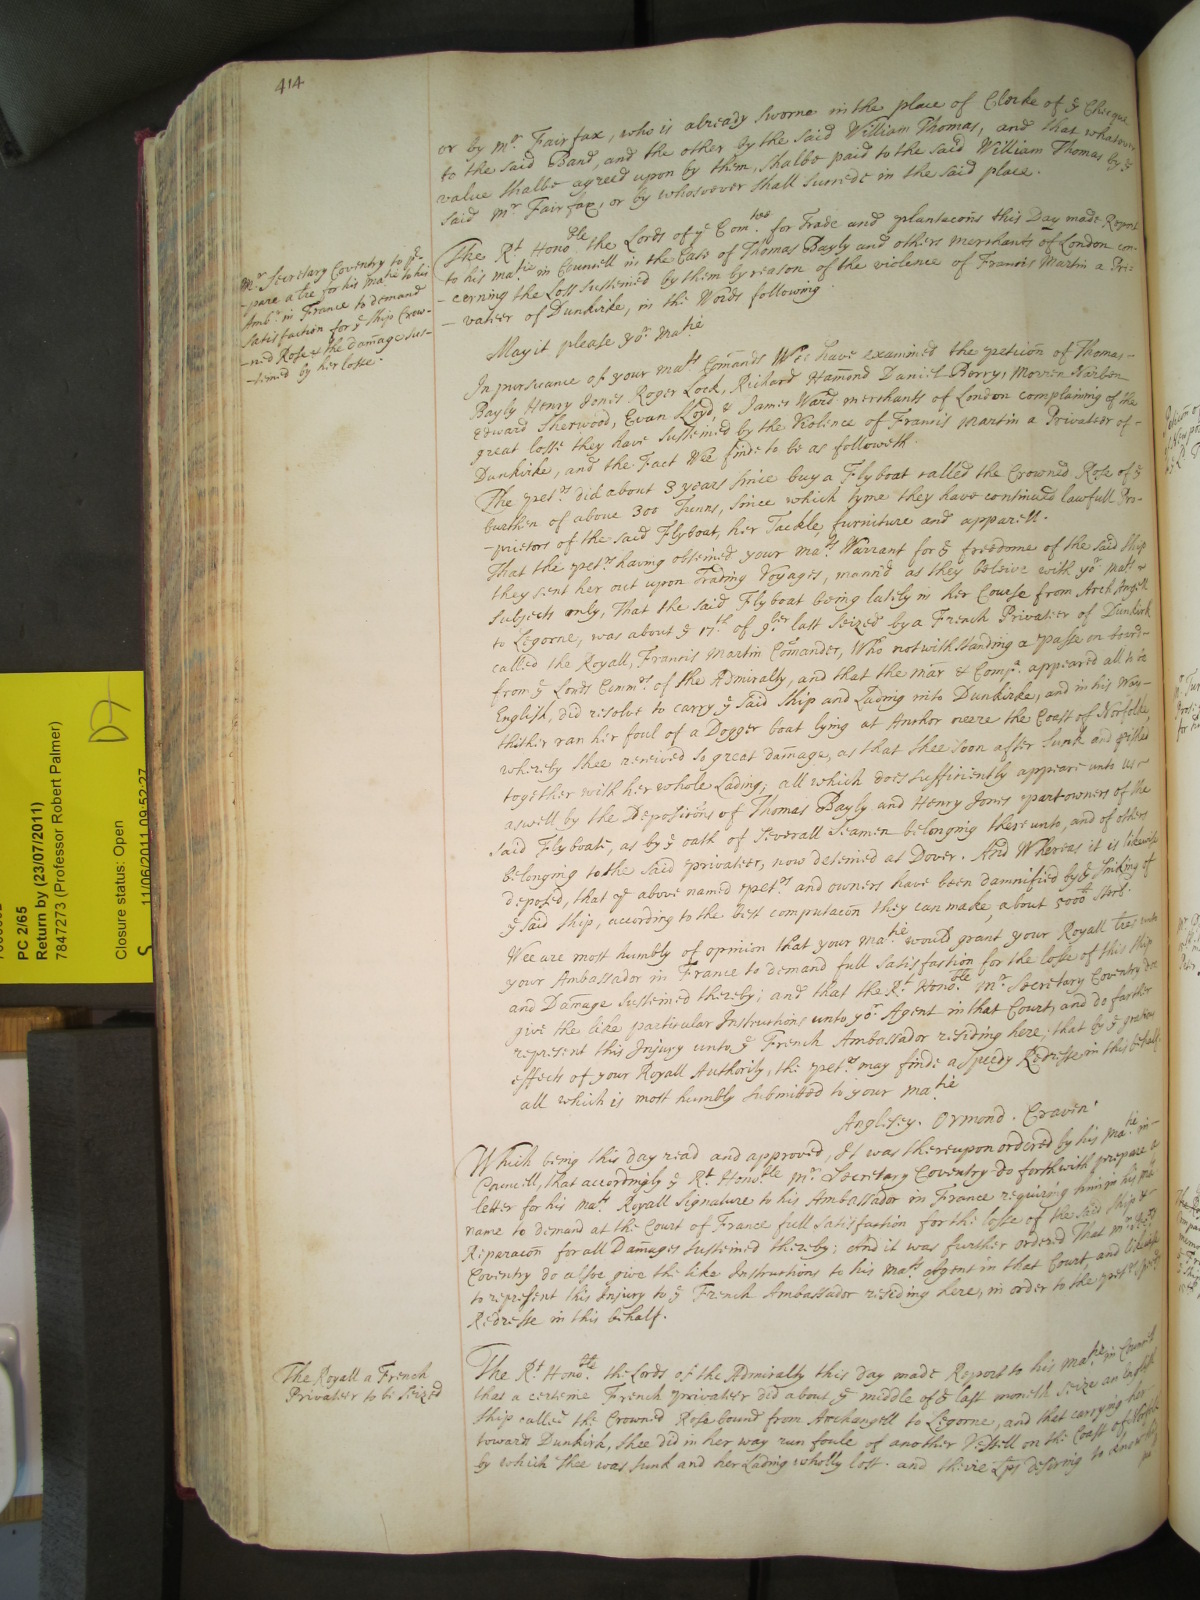 414
or by Mr. Fairfax, who is already sworne in the place of Clerke of ye Checque
to the said Band, and the other by the said William Thomas, and that whatever
value shalbe agreed upon by them, shalbe paid to the said William Thomas by ye
said Mr. Fairfax, or by whosoever shall succede in the said place.
Mr. Secretary Coventry to pre-
-pare a tre for his Matie to his
Ambr. in France to demand
Satisfaction for ye Ship Crow-
-ned Rose & the damage sus-
-teined by her losse.
The Rt. Honoble. the Lords of ye Comtee for Trade and plantacons this Day made Report
to his Matie in Councill in the Case of Thomas Bayly and others Merchants of London con-
-cerning the Loss susteined by them by reason of the violence of Francis Martin a Pri-
-vateer of Dunkirke, in the Words following.
May it please yor. Matie
In pursuance of your Mats. Comands Wee have examined the peticon of Thomas-
Bayly Henry Jones Roger Lock, Richard Hamond Daniel Berry, Morren Narben
Edward Sherwood, Evan Lloyd, & James Ward merchants of London complaining of the
great losse they have susteined by the Violence of Francis Martin a Privateer of-
Dunkirke, and the Fact Wee finde to be as followeth.
The petrs. did about 3 years since buy a Flyboat called the Crowned Rose of ye
burthen of above 300 Tunns, since which tyme they have continued lawfull Pri-
-prietors of the said Flyboat, her Tackle, furniture and apparell.
That the petrs. having obteined your Mats. Warrant for ye freedome of the said Ship
they sent her out upon Trading Voyages, mann'd as they beleive with yor. Mats.
Subjects only, That the said Flyboat being lately in her Course from Arch Angell
to Legorne, was about ye 17th. of 9ber last seized by a French Privatier of Dunkirk
called the Royall, Francis Martin Comander, Who notwithstanding a passe on bourd-
from ye Lords Commrs. of the Admiralty, and that the Mar & Compa. appeared all to be
English, did resolve to carry ye said Ship and Lading into Dunkirke, and in his Way-
thither ran her foul of a Dogger boat lying at Anchor neere the Coast of Norfolke,
whereby shee received so great damage, as that shee soon after sunk and perished
together with her whole Lading; all which does sufficiently appeare unto us
aswell by the Depositions of Thomas Bayly and Henry Jones part owners of the
said Flyboate, as by ye oath of severall Seamen belonging thereunto, and of others
belonging to the said privateer, now deteined at Dover. And Whereas it is likewise
deposed, that ye above named petrs. and owners have been damnified by ye sinking of
ye said Ship, according to the best computacon they can make, about 5000li. Sterl:
Wee are most humbly of opinion that your Matie. would grant your Royall tres unto
your Ambassador in France to demand full satisfaction for the losse of this Ship
and Damage susteined thereby; and that the Rt. Honoble. Mr. Secretary Coventry doe
give the like particular Instructions unto yor. Agent in that Court, and do farther
represent this Injury unto ye French Ambassador residing here; that by ye gratious
effects of your Royall Authority, the petrs. may finde a speedy Redresse in this behalf.
all which is most humbly submitted to your Matie
Anglesey. Ormond. Craven.
Which being this day read and approved, It was thereupon ordered by his Matie. in-
Councill, that accordingly ye Rt. Honoble. Mr. Secretary Coventry do forthwith prepare a
letter for his Mats. Royall Signature to his Ambassador in France requiring him in his Mats
name to demand at the Court of France full satisfaction for the losse of the said Ship &
Reparacon for all Damages susteined thereby; And it was further ordered That Mr. Secry
Coventry do also give the like Instructions to his Mats. Agent in that Court, and likewise
to represent this Injury to ye French Ambassador residing here, in order to the petrs. speedy
Redresse in this behalf.
The Royall a French
Privateer to be seized
The Rt. Honoble. the Lords of the Admiralty this day made Report to his Matie. in Councill
that a certeine French privateer did about ye middle of ye last moneth seize an English
Ship called the Crowned Rose bound from Archangell to Legorne, and that carrying her
towards Dunkirk, shee did in her way run foule of another Vessell on the Coast of Norfolk
by which shee was sunk and her Lading wholly lost. and theire Lps desiring to know his
PC 2/65
Return by (23/07/2011)
7847273 (Professor Robert Palmer)
Closure status: Open
11/06/2011 09:52:27
S